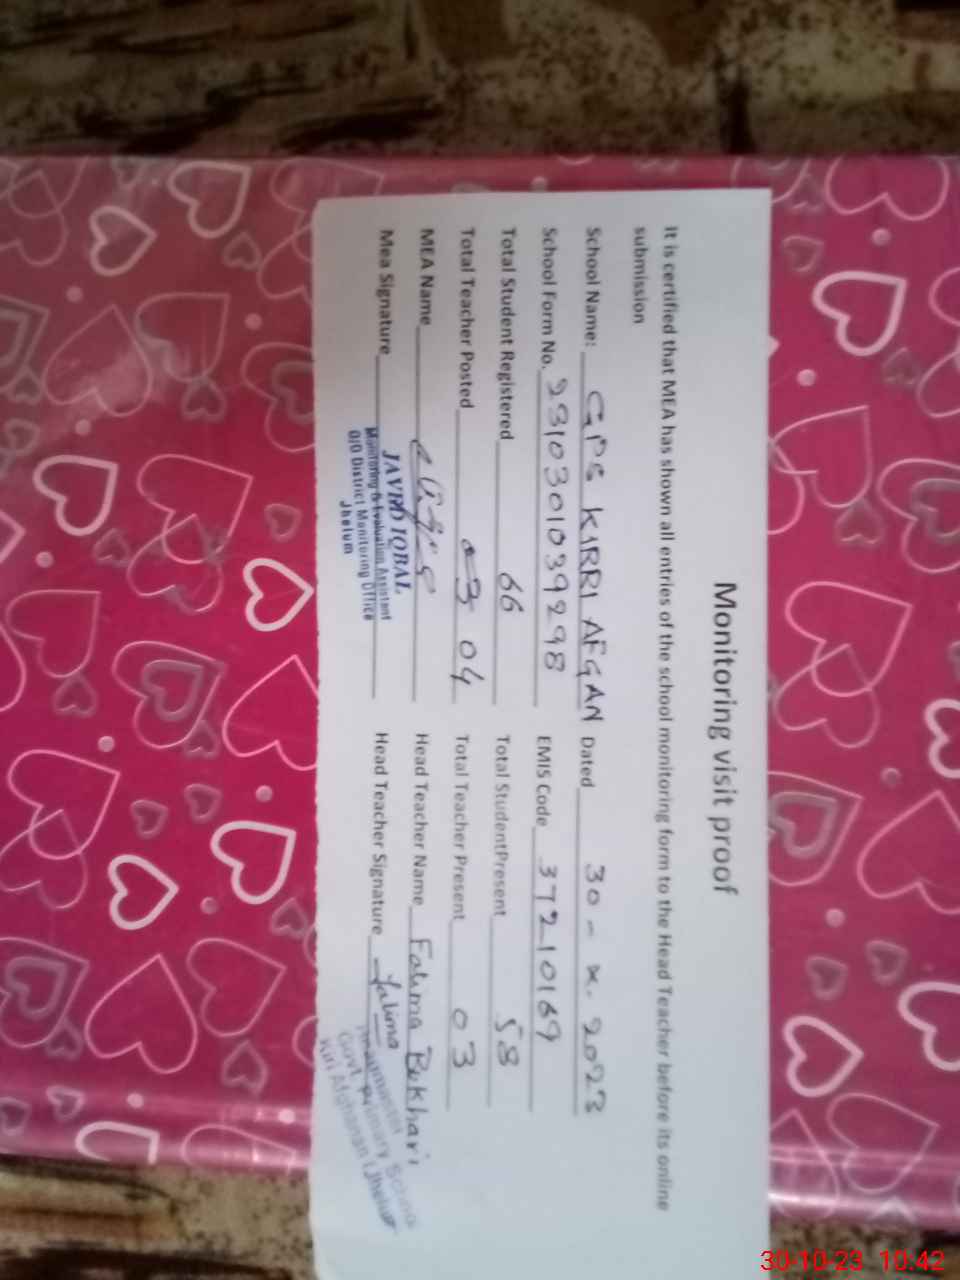 Monitoring visit proof
It is certified that MEA has shown all entries of the school monitoring form to the Head Teacher before its online
submission
School Name: GPS KIRRI AFGAN Dated 30 - x. 2023
School Form No. 2310301039298 EMIS Code 37210169
Total Student Registered 66 Total StudentPresent 58
Total Teacher Posted 03 04 Total Teacher Present 03
MEA Name Head Teacher Name Fatima Bukhari
Mea Signature Head Teacher Signature Fatima
JAVED IQBAL
Monitoring & Evaluation Assistant
O/O District Monitoring Office
Jhelum
Govt. Primary School
Kiri Afghanan (Jhelum)
30-10-23 10:42